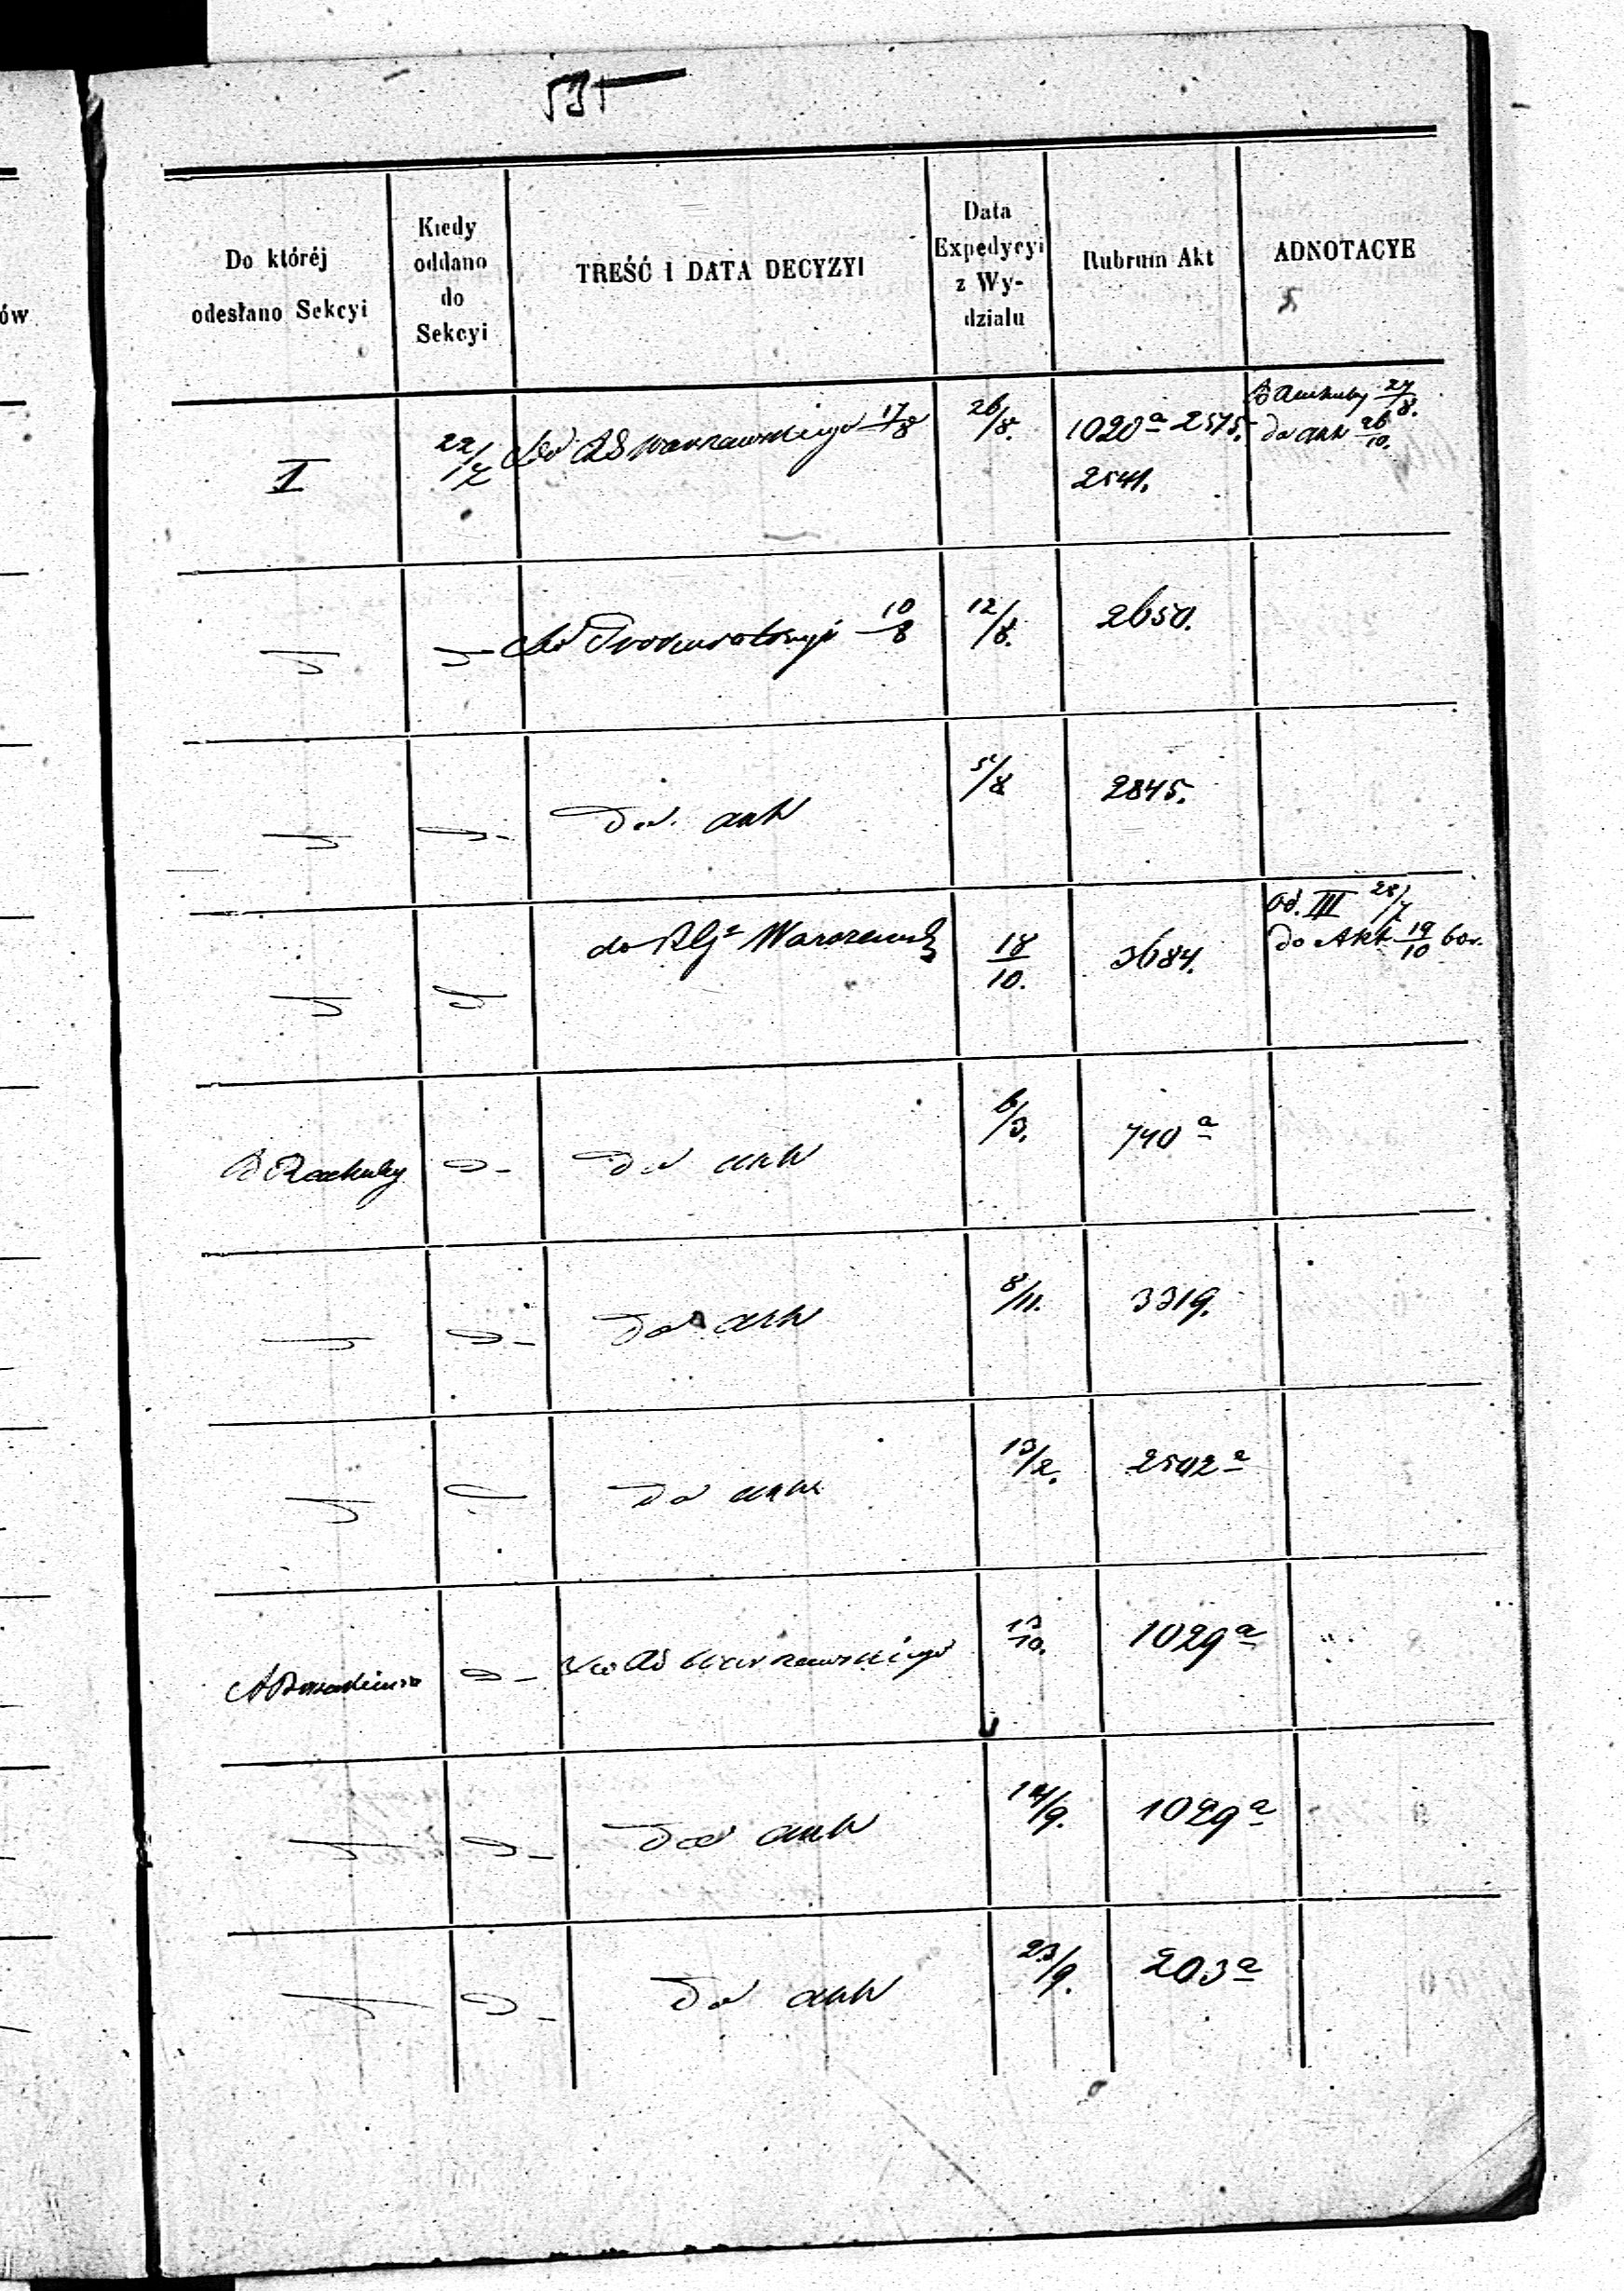 Do któréj
odesłano Sekcyi
Kiedy
oddano
do
Sekcyi
TREŚĆ I DATA DECYZYI
Data
Expedycyi
z Wy-
działu
Rubrum Akt
ADNOTACYE
ów
I
22/7
Do RG Warszawskiego 17/8
26/8.
1020a 2575.
2541.
27/8.
do akt 26/10.
Do Prokuratoryi 10/8
12/8.
2650.
do akt
5/8
2845.
do RGo Warszawsk
18/10.
3684.
od. III 28/7
do Akt 19/10 60r.
B Rachuby
do akt
6/3.
740a
do akt
8/11.
3319.
do akt
13/2.
2502a
Do RG Warszawskiego
13/10.
1029a
do akt
14/9.
1029a
do akt
23/9.
203a